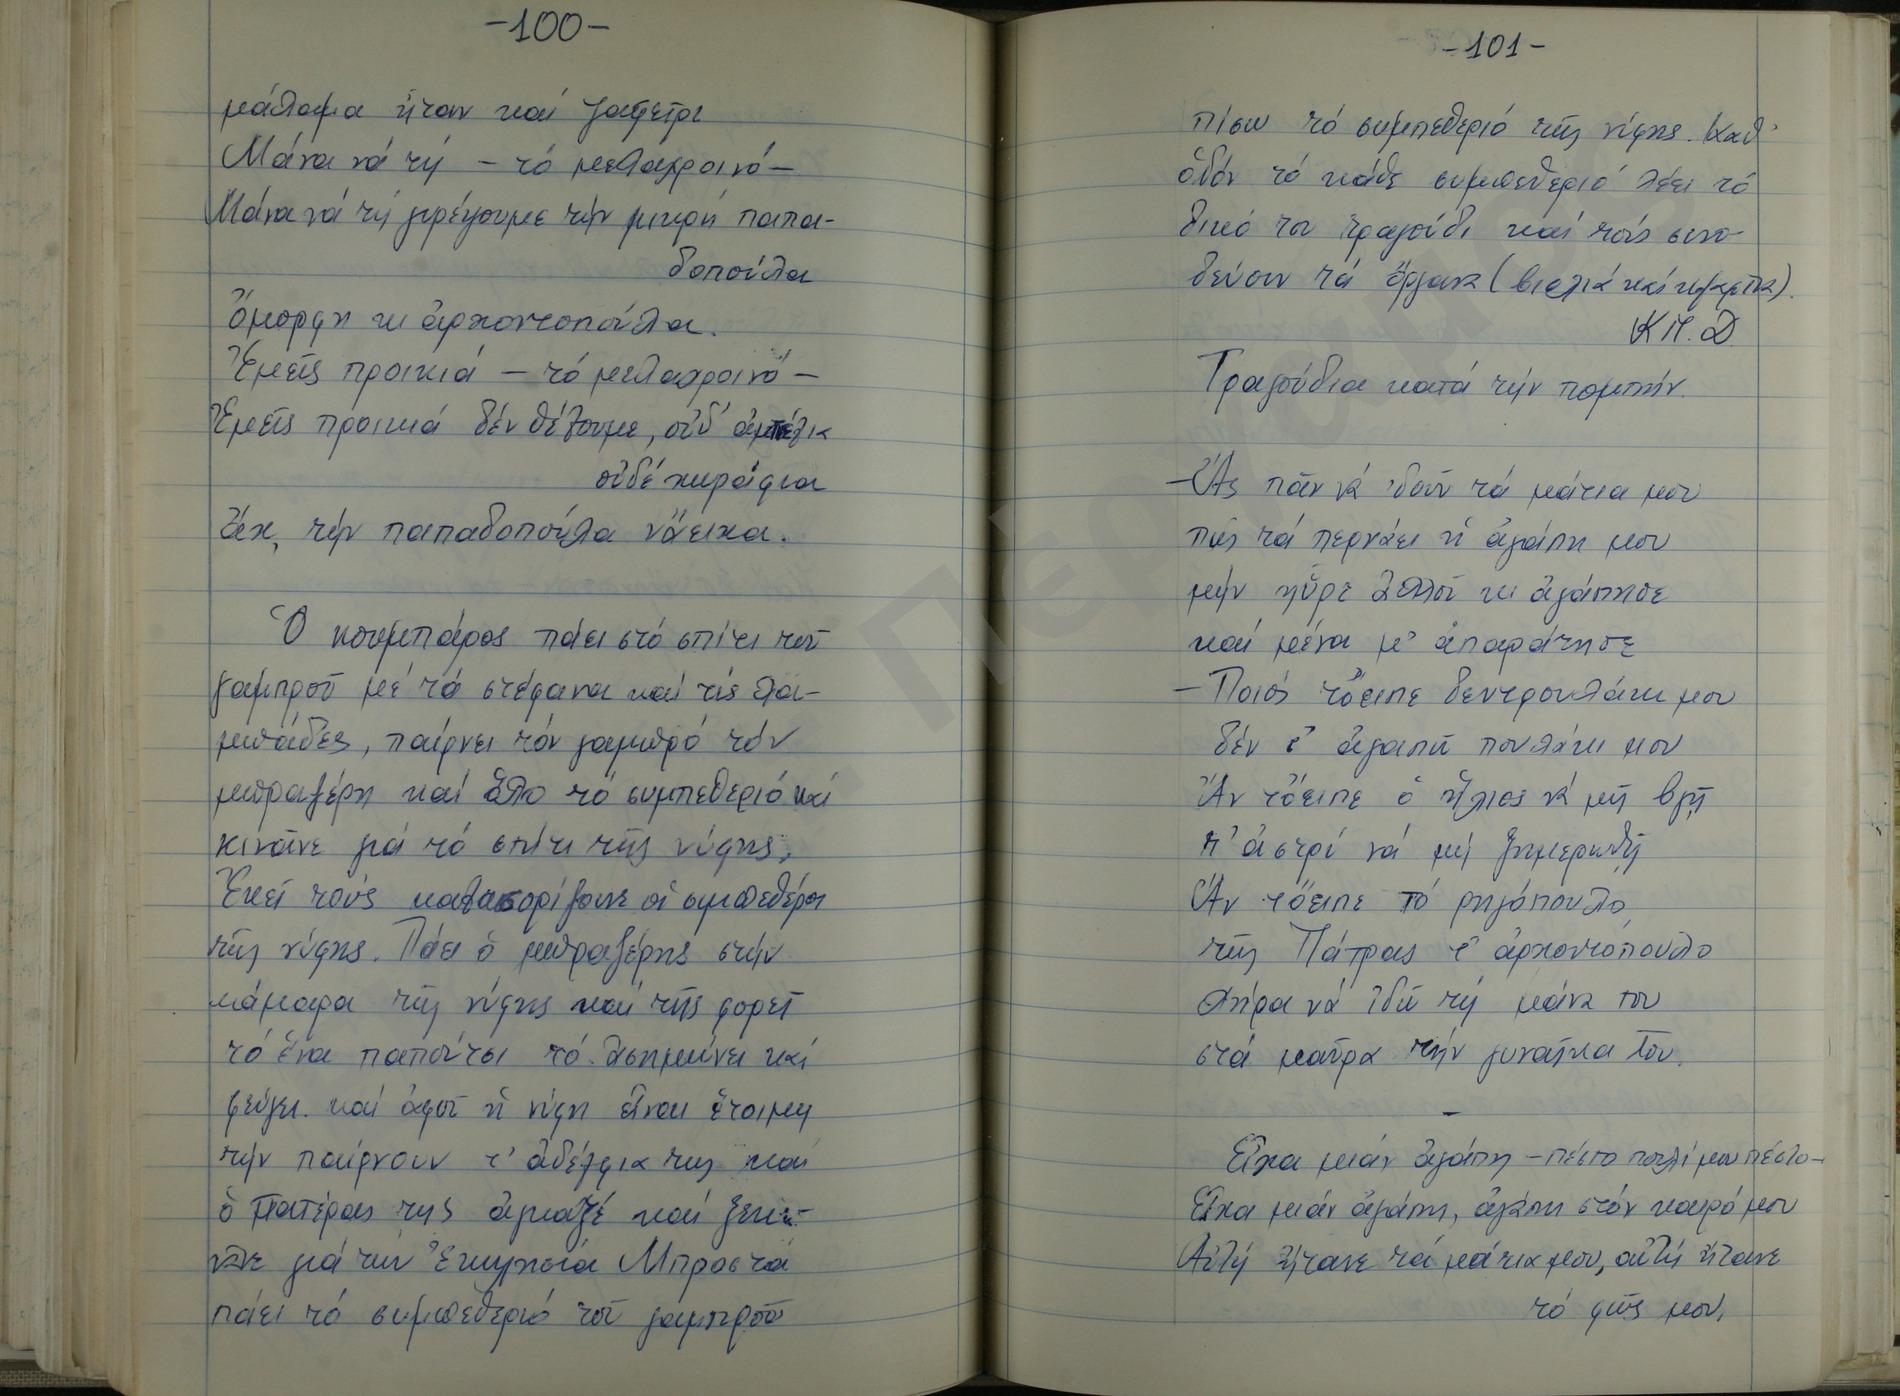 -100-
μάλαμα ἤταν καί ζαφεῖρι
Μάνα νά τή – τό μελαχροινό –
Μάνα νά τή γυρέψουμε τήν μικρή παπα-
δοπούλα
Ὄμορφη κι ἀρχοντοπούλα.
Ἐμεῖς προικιά – τό μελαχροινό –
Ἐμεῖς προικιά δέν θέλουμε, οὐδ' ἀμπέλια
οὐδέ χωράφια
ἄχ, τήν παπαδοπούλα νἄειχα.
Ὁ κουμπάρος πάει στό σπίτι τοῦ
γαμπροῦ μέ τά στέφανα καί τίς λα-
μπάδες, παίρνει τόν γαμπρό τόν
μπραζέρη καί ὅλο τό συμπεθεριό καί
κινᾶνε γιά τό σπίτι τῆς νύφης.
Ἐκεῖ τούς καλωσορίζουνε οἱ συμπεθέροι
τῆς νύφης. Πάει ὁ μπραζέρης στήν
κάμαρα τῆς νύφης καί τῆς φορεῖ
τό ἕνα παπούτσι τό ἀσημώνει καί
φεύγει. καί ἀφοῦ ἡ νύφη εἶναι ἕτοιμη
τήν παίρνουν τ' ἀδέλφια της καί
ὁ πατέρας της ἀγκαζέ καί ξεκι-
νᾶνε γιά τήν Ἐκκλησία Μπροστά
πάει τό συμπεθεριό τοῦ γαμπροῦ
-101-
πίσω τό συμπεθεριό τῆς νύφης. Καθ'
ὁδόν τό κάθε συμπεθεριό λέει τό
δικό του τραγούδι καί τούς συνο-
δεύουν τά ὄργανα (βιολιά καί κλαρῖνα).
Κ.Π.Δ.
Τραγούδια κατά τήν πομπήν.
– Ἄς πᾶν νά 'δοῦν τά μάτια μου
πῶς τά περνάει ἡ ἀγάπη μου
μήν ηὗρε ἀλλοῦ κι ἀγάπησε
καί μένα μ' ἀπαράτησε
– Ποιός τὄειπε δεντρουλάκι μου
δέν σ' ἀγαπῶ πουλάκι μου
Ἄν τὄειπε ὁ ἥλιος νά μή βγῇ
τ' ἀστρί νά μή ξημερωθῇ
Ἄν τὄειπε τό ρηγόπουλο
τῆς Πάτρας τ' ἀρχοντόπουλο
χήρα νά ἰδῶ τή μάνα του
στά μαῦρα τήν γυναῖκα του.
–
Εἶχα μιάν ἀγάπη – πέστο πουλί μου πέστο –
Εἶχα μιάν ἀγάπη, ἀγάπη στόν καιρό μου
Αὐτή ἤτανε τά μάτια μου, αὐτή ἤτανε
τό φῶς μου,